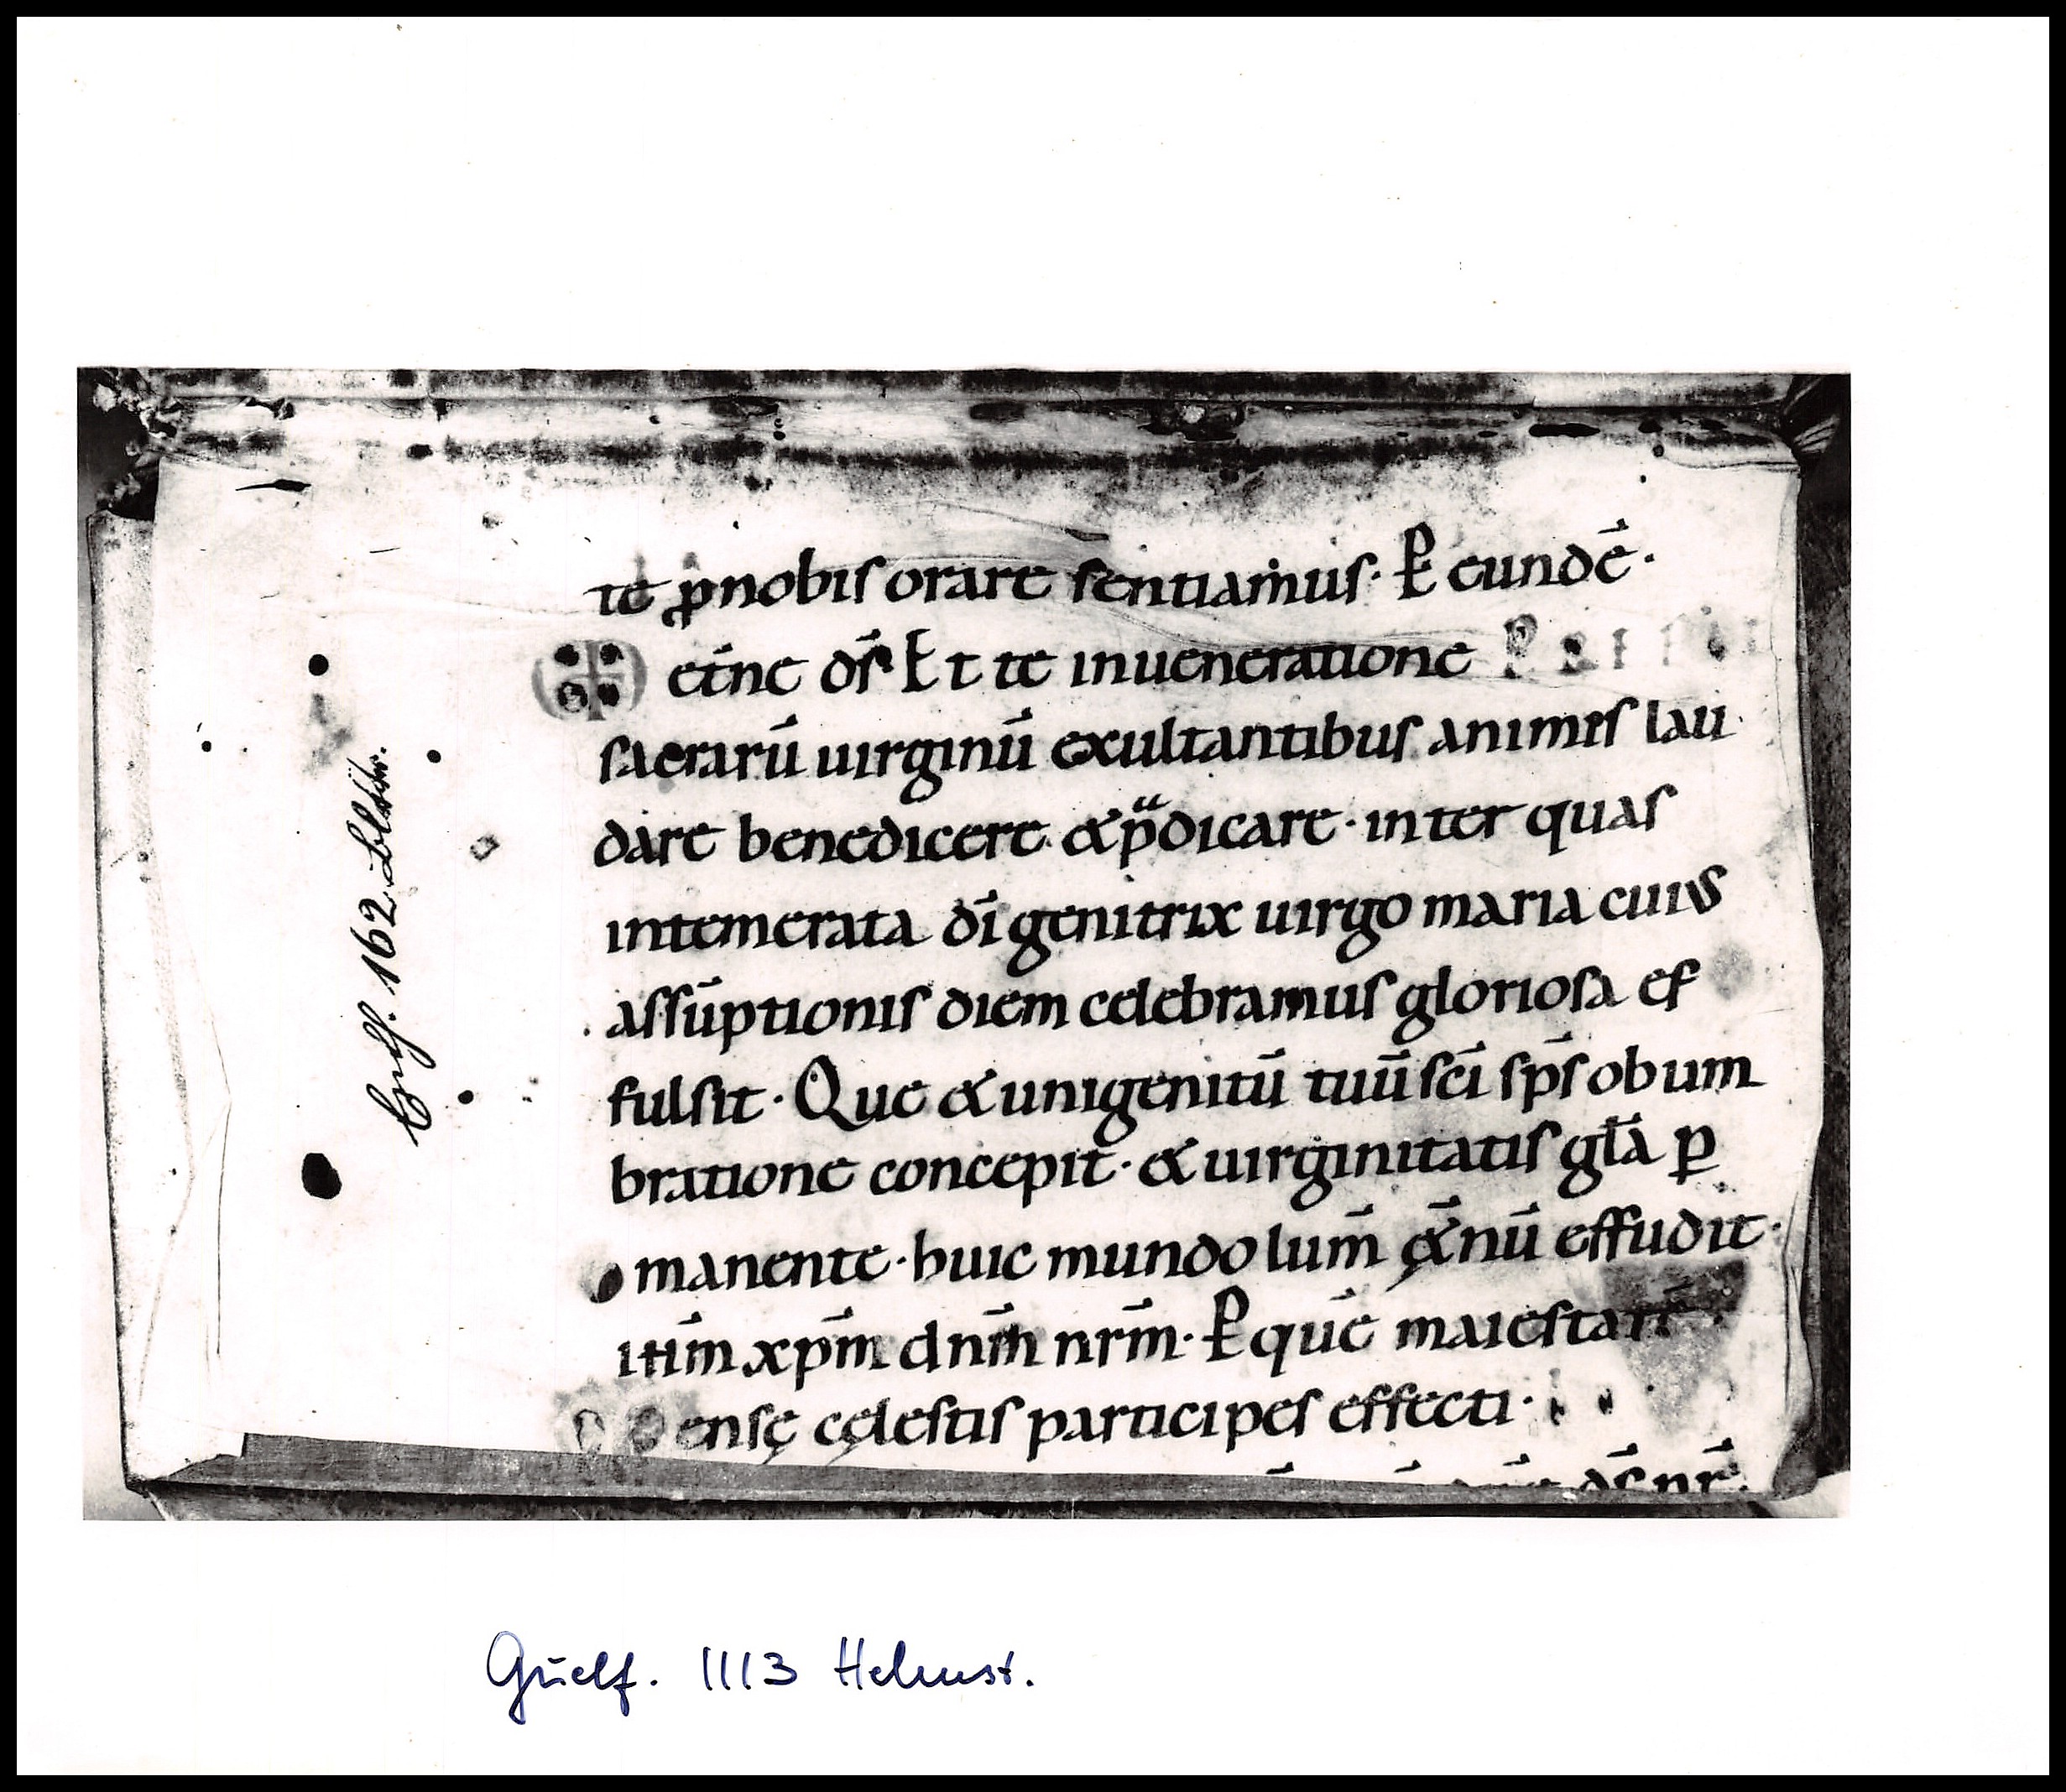 te ꝓnobiſ orare ſentiamuſ· P̲ eundē·
etn̄e dſ̄ Et te inueneratione
ſacrarū uirginū exultantibuſ animiſ lau
dare benedicere &p̄dicare· inter quaſ
intemerata dī genitrix uirgo maria cuiuſ
aſſūptioniſ diem celebramuſ glorioſa ef
fulſit· Que & unigenitū tuū ſcī ſp̄ſ obum
bratione concepit· & uirginitatiſ gl̄a ꝑ
manente· huic mundo lum̄ &̨nū effudit·
ihm̄ xpm̄ dnm̄ nrm̄· P̲ quē maieſtatē
enſę cęleſtiſ participeſ effecti·
dſ̄ nr̄
Enth. 162 Blätter.
Guelf. 1113 Helmst.